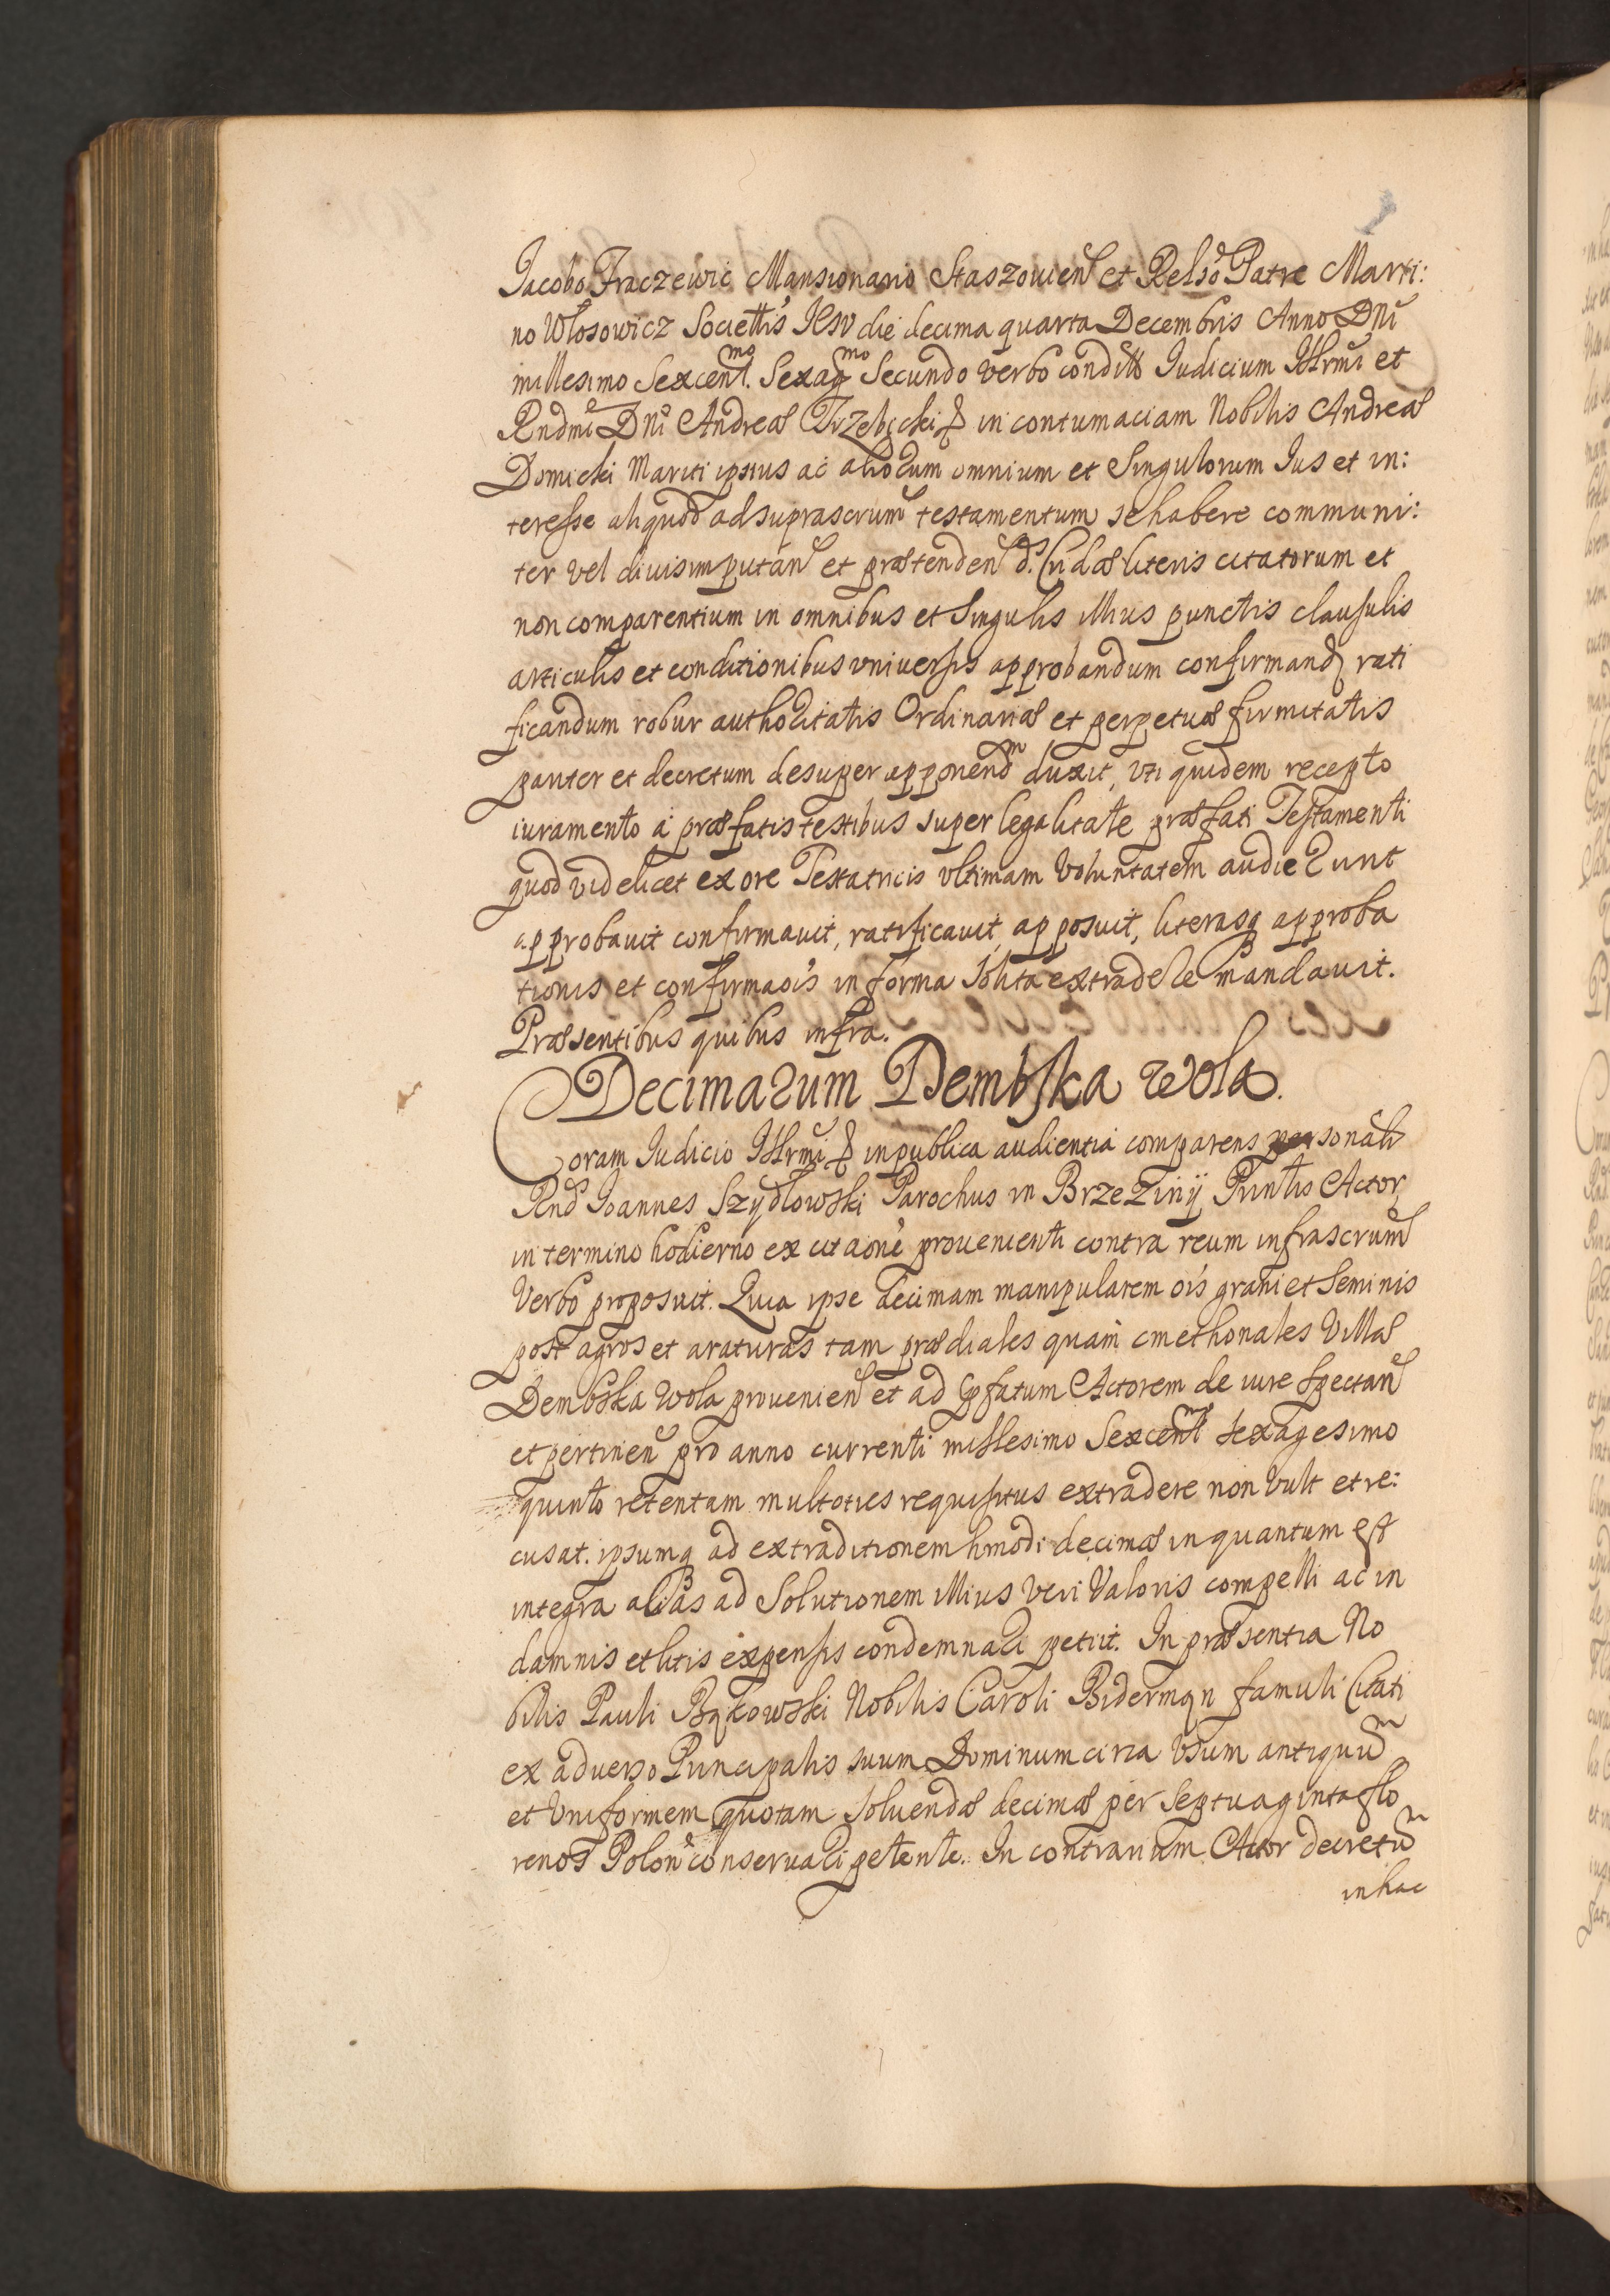 Iacobo Frączewic Mansionario Staszouien et Relsō Patre Marti:
no Włosowicz Societtis IESV die decima quarta Decembris Anno Dnī
millesimo Sexcent.mo Sexagmo Secundo verbo conditt Iudicium Illrmi et
Rndmi Dni Andreæ Trzebicki & in contumaciam Nobilis Andreæ
Domicki Mariti ipsius ac aliorum omnium et Singulorum Ius et in:
teresse aliquod ad suprascrum testamentum se habere communi:
ter vel diuisim putan et prætenden d. Cridæ literis citatorum et
non comparentium in omnibus et Singulis illius punctis clausulis
articulis et conditionibus vniuersis approbandum confirmand rati
ficandum robur authoritatis Ordinariæ et perpetuæ firmitatis
pariter et decretum desuper apponendm duxit, vti quidem recepto
iuramento á præfatis testibus super legalitate præfati Testamenti
quod videlicet ex ore Testatricis vltimam Voluntatem audierunt
approbauit confirmauit, ratificauit, apposuit, literasq approba
tionis et confirmaõis in forma Solita extradere mandauit.
Præsentibus quibus infra.
Decimarum Dembska Wola.
Coram Iudicio Illrmi & in publica audientia comparens personalr
Rnds Ioannes Szydłowski Parochus in Brzeziny Prinlis Actor
in termino hodierno ex citaõne prouenienti contra reum infrascrum
Verbo proposuit. Quia ipse decimam manipularem ois grani et Seminis
post agros et araturas tam prædiales quam cmethonales Villæ
Dembska Wola prouenien et ad pfatum Actorem de iure Spectan
et pertinen pro anno currenti millesimo Sexcentmo sexagesimo
quinto retentam multoties requisitus extradere non vult et re:
cusat. ipsumq ad extraditionem hmodi decimæ in quantum est
integra aliás ad Solutionem illius veri Valoris compelli ac in
damnis et litis expensis condemnari petiit. In præsentia No
bilis Pauli Bąkowski Nobilis Caroli Biderman famuli Citati
ex aduerso Principalis suum Dominum circa Vsum antiquum
et Vniformem quotam Soluendæ decimæ per Septuaginta flo
renos Polone conseruari petente. In contrarium Actor decretum
in hac